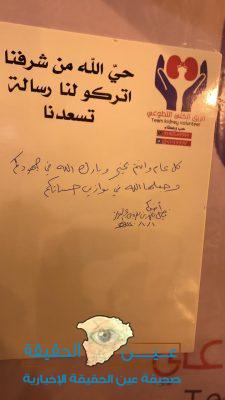 حيّ الله من شرفنا
اتركو لنا رسالة
تسعدنا
فريق الكلى التطوعي
Team kidney volunteer
كل عام وانتم بخير وبارك الله في جهودكم
وجعلها الله في موازين حسناتكم
أخوكم
عين الحقيقة
صحيفة عين الحقيقة الإخبارية